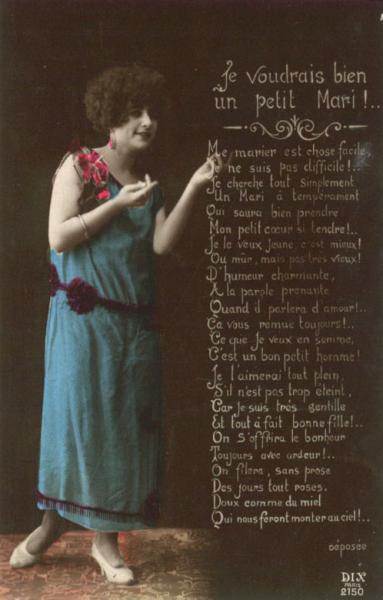 Je voudrais bien
un petit Mari !..
Me marier est chose facile,
Je ne suis pas difficile !..
Je cherche tout simplement
Un Mari à tempérament
Qui saura bien prendre
Mon petit cœur si tendre !..
Je le veux jeune, c'est mieux !
Ou mûr, mais pas très vieux !
D'humeur charmante,
A la parole prenante
Quand il parlera d'amour !..
Ça vous remue toujours !..
Ce que je veux en somme,
C'est un bon petit homme !
Je l'aimerai tout plein,
S'il n'est pas trop éteint,
Car je suis très gentille
Et tout à fait bonne fille !..
On s'offrira le bonheur
Toujours avec ardeur !..
On filera, sans prose
Des jours tout roses.
Doux comme du miel
Qui nous feront monter au ciel !..
déposée
DIX
PARIS
2150